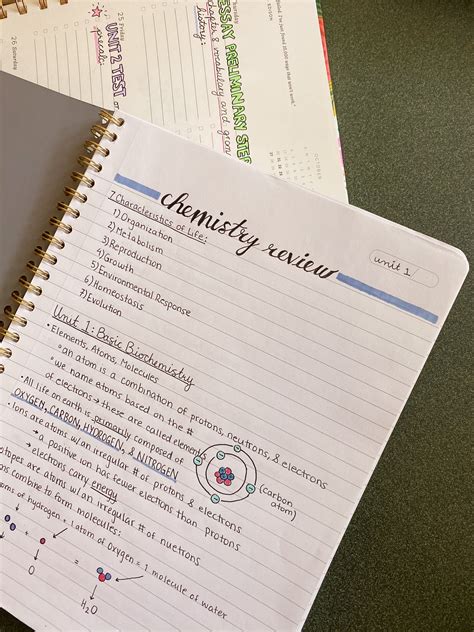 chemistry review
unit 1
7 Characteristics of Life:
1) Organization
2) Metabolism
3) Reproduction
4) Growth
5) Environmental Response
6) Homeostasis
7) Evolution
Unit 1: Basic Biochemistry
• Elements, Atoms, Molecules
◦ an atom is a combination of protons, neutrons, & electrons
◦ we name atoms based on the #
of electrons → these are called elements
• All life on earth is primarily composed of
OXYGEN, CARBON, HYDROGEN, & NITROGEN
• Ions are atoms w/an irregular # of protons & electrons
→ a positive ion has fewer electrons than protons
→ electrons carry energy
atoms w/an irregular # of nuetrons
combine to form molecules:
of hydrogen + 1 atom of oxygen = 1 molecule of water
+ =
O
H₂O
(carbon
atom)
25 Friday
UNIT 2 TEST
precalc:
26 Saturday
ESSAY PRELIMINARY STEP
history:
chapter 8 vocabulary and
OCTOBER